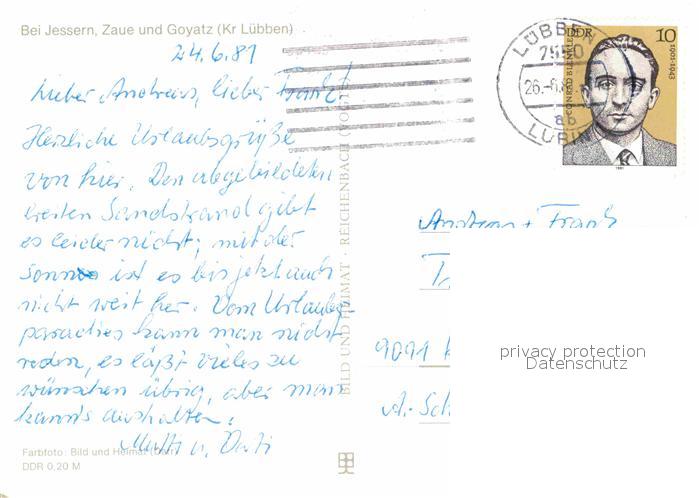 Bei Jessern, Zaue und Goyatz (Kr Lübben)
24.6.81
Lieber Andreas, lieber Frank!
Herzliche Urlaubsgrüße
von hier. Den abgebildeten
breiten Sandstrand gibt
es leider nicht; mit der
Sonne ist es bis jetzt auch
nicht weit her. Vom Urlaubs-
paradies kann man nicht
reden, es läßt vieles zu
wünschen übrig, aber man
kann's aushalten.
Mutti u. Vati
Farbfoto: Bild und Heimat
DDR 0,20 M
BILD UND HEIMAT · REICHENBACH (VOGTL)
LÜBBEN
7550
26.-6.
ab
LÜBBEN
DDR
10
CONRAD BLENKLE
1901-1943
1981
Andreas + Frank
9091
A.-Sch
privacy protection
Datenschutz